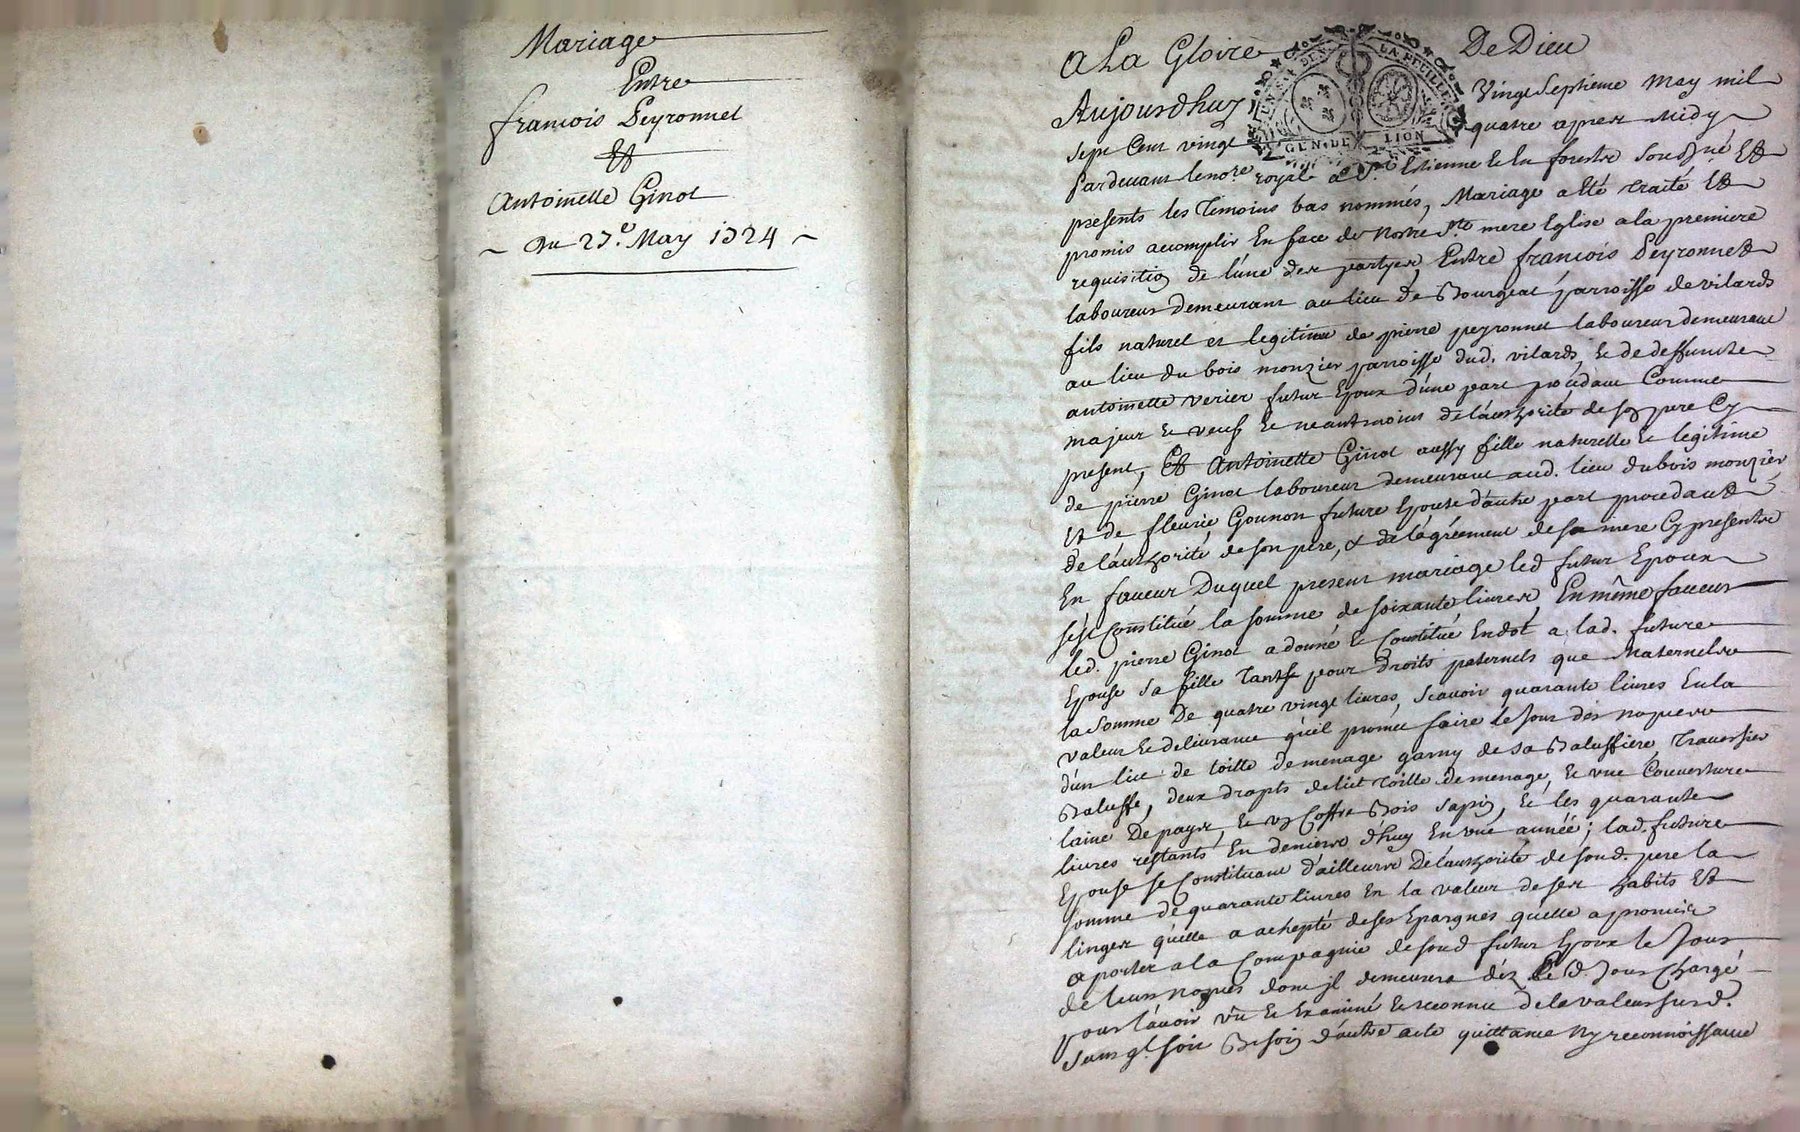 Mariage
Entre
francois Peyronnet
Et
Antoinette Ginot
~ Du 27.e May 1724 ~
A La Gloire De Dieu
GEN. DE LION
LA FEUILLE
Aujourdhuy Vingt Septieme May mil
Sept Cent vingt quatre apres Midy
Pardevant le no.re royal a S.t Estienne En forestz Sousigné Et
presents les Temoins bas nommés, Mariage a Eté traité Et
promis accomplir En face de Nostre S.te mere Eglise a la premiere
requisition de l'une des partyes, Entre francois Peyronnet
laboureur demeurant au lieu de Bourgeat parroisse de vilards
fils naturel et legitime de pierre peyronnet laboureur demeurant
au lieu du bois monzier parroisse dud. vilards, & de deffuncte
antoinette verier futur Epoux d'une part procedant Comme
majeur & veuf & neantmoins de l'authorité de son pere Cy
present, Et Antoinette Ginot aussy fille naturelle & legitime
de pierre Ginot laboureur demeurant aud. lieu du bois monzier
Et de fleurie Gounon future Epouse d'autre part procedant
de l'authorité de son pere, & de l'agréement de sa mere Cy presente
En faveur Duquel present mariage led futur Epoux
s'est Constitué la somme de soixante livres, En même faveur
led. pierre Ginot a donné & Constitué En dot a lad. future
Epouse sa fille tant pour droits paternels que Maternels
la Somme De quatre vingt livres, scavoir quarante livres En la
valeur & delivrance qu'il promet faire le Jour des nopces
d'un lict de toille de menage garny de sa Baluffiere, Traversier
Baluffe, deux drapts de lict toille de menage, & vne Couverture
laine De pays, & vn Coffre Bois sapin, & les quarante
livres restants En deniers d'huy En vne année; lad. future
Epouse se Constituant d'ailleurs De l'authorité de sond. pere la
somme de quarante livres En la valeur de ses habits Et
linges qu'elle a achepté de ses Epargnes qu'elle a promis
aporter a la Compagnie de sond futur Epoux le Jour
de leurs nopces dont jl demeurera déz Led. Jour Chargé
pour l'avoir vû & Examiné & reconnu de la valeur susd.
sans q.l soit Besoin d'autre acte quittance Ny reconnoissance